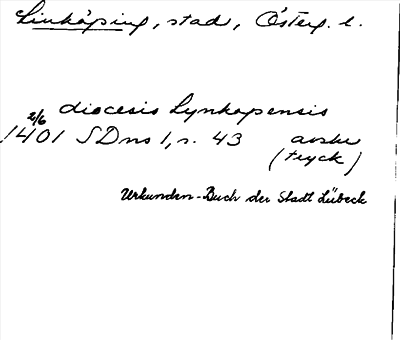 Linköping, stad, Österg. l.
diocesis Lynkopensis
2/6
1401 SDns 1, s. 43 avskr
(tryck)
Urkunden-Buch der Stadt Lübeck